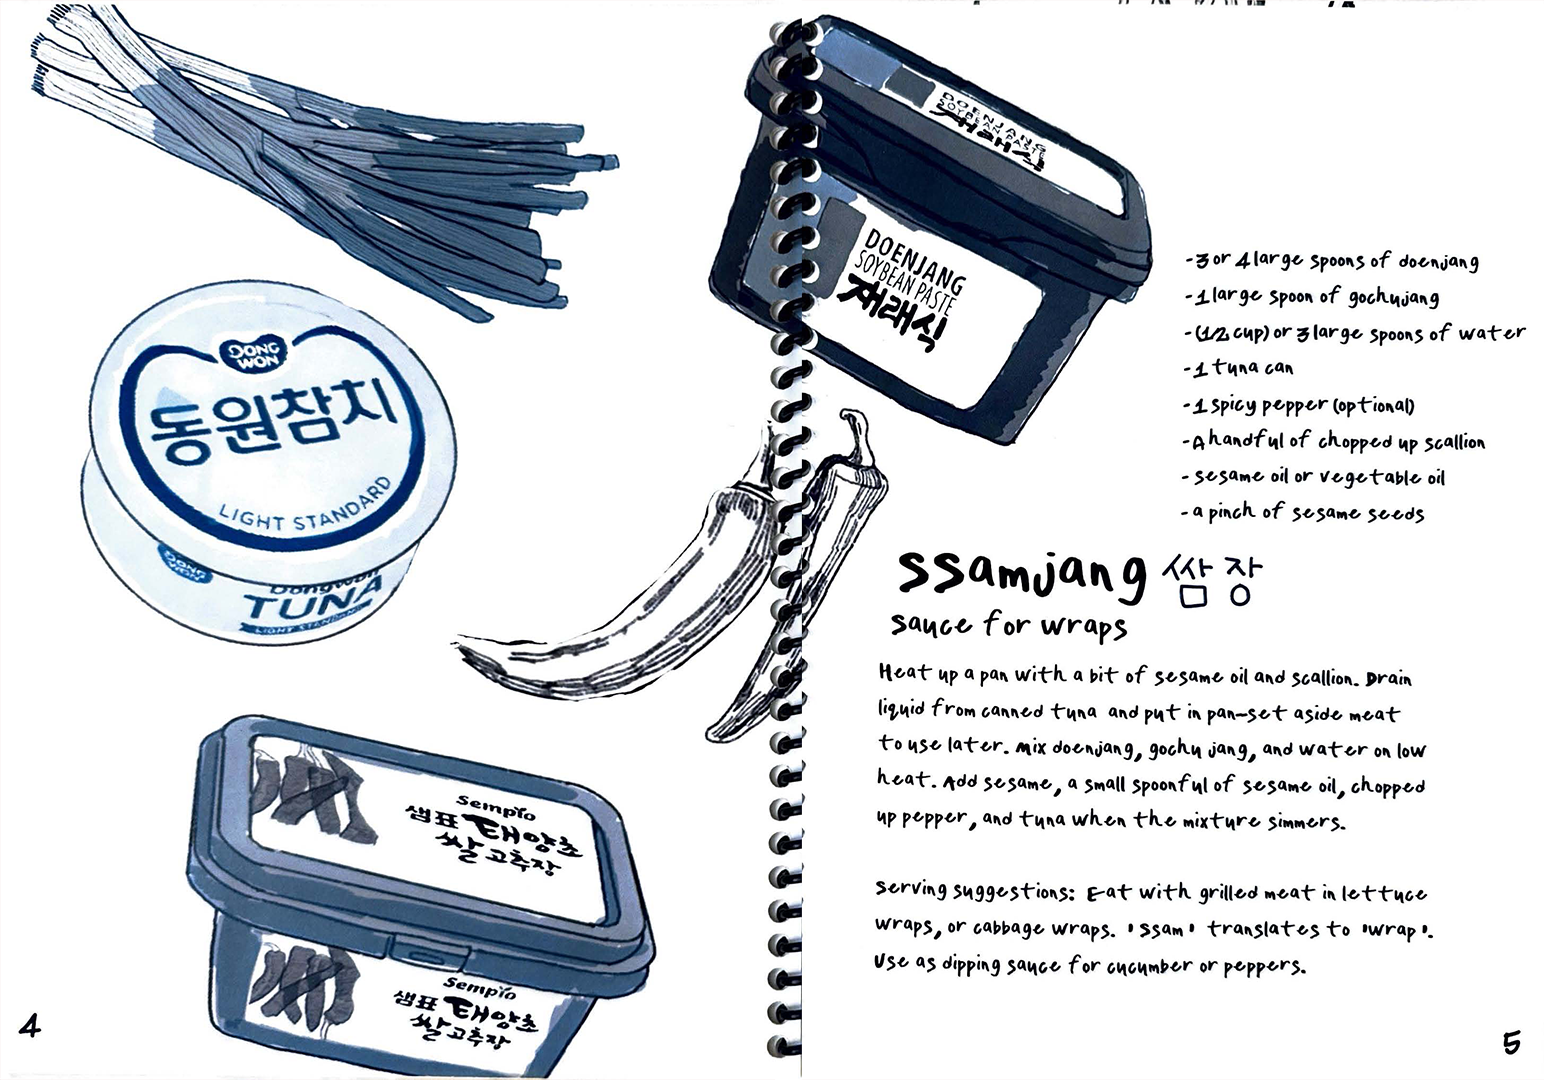 DONG
WON
동원참치
LIGHT STANDARD
DONG
WON
Dongwon
TUNA
LIGHT STANDARD
Sempio
샘표 태양초
쌀 고추장
Sempio
샘표 태양초
쌀 고추장
4
DOENJANG
SOYBEAN PASTE
재래식
DOENJANG
SOYBEAN PASTE
재래식
-3 or 4 large spoons of doenjang
-1 large spoon of gochujang
-(1/2 cup) or 3 large spoons of water
-1 tuna can
-1 spicy pepper (optional)
-A handful of chopped up scallion
- sesame oil or vegetable oil
- a pinch of sesame seeds
ssamjang 쌈장
sauce for wraps
Heat up a pan with a bit of sesame oil and scallion. Drain
liquid from canned tuna and put in pan-set aside meat
to use later. Mix doenjang, gochu jang, and water on low
heat. Add sesame, a small spoonful of sesame oil, chopped
up pepper, and tuna when the mixture simmers.
Serving suggestions: Eat with grilled meat in lettuce
wraps, or cabbage wraps. 'Ssam' translates to 'wrap'.
Use as dipping sauce for cucumber or peppers.
5